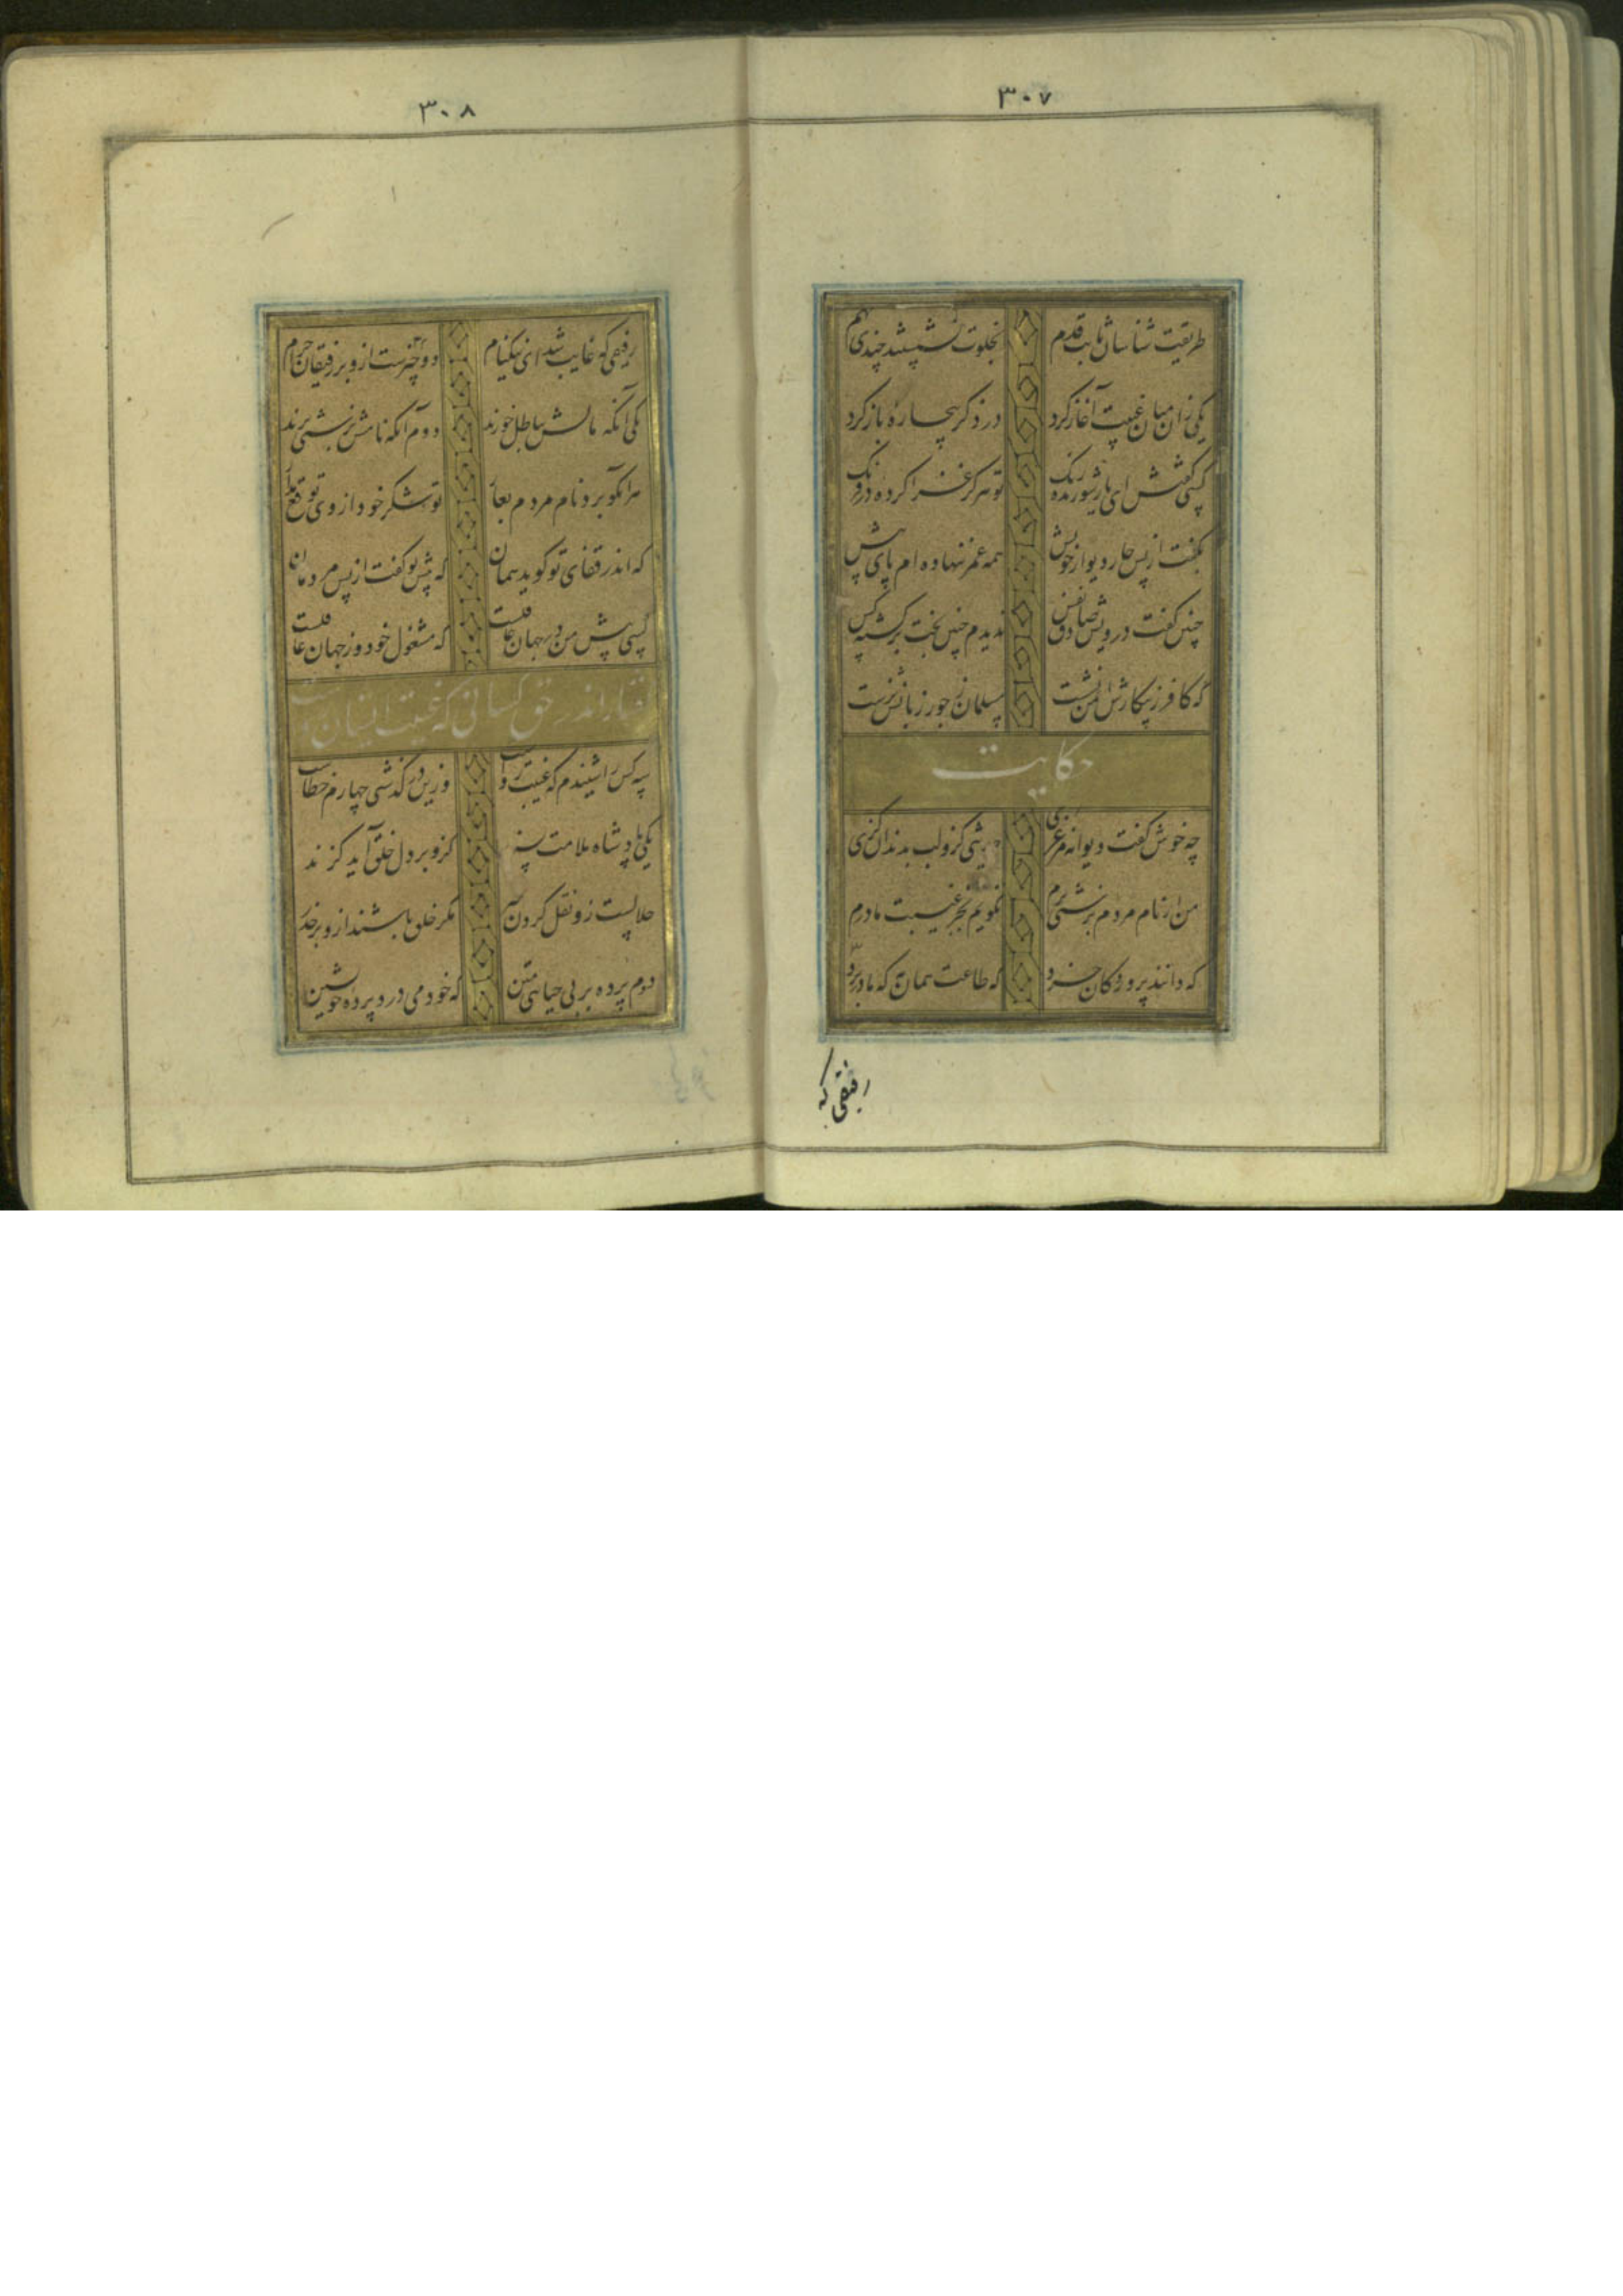 ۳۰۷
طریقت شناسان ثابت قدم بخلوت نشستند چندی بهم
یکی زان میان غیبت آغاز کرد در ذکر بیچارهٔ باز کرد
کسی گفتش ای یار شوریده رنگ تو هرگز غزا کردهٔ در فرنگ
بگفت از پس چار دیوار خویش همه عمر ننهاده ام پای پیش
چنین گفت درویش صادق نفس ندیدم چنین بخت برگشته کس
که کافر ز پیکارش ایمن نشست مسلمان ز جور زبانش نرست
حکایت
چه خوش گفت دیوانه مرغزی حدیثی کزو لب بدندان گزی
من ار نام مردم بزشتی برم نگویم بجز غیبت مادرم
که دانند پروردگان خرد که طاعت همان به که مادر برد
رفیقی که
۳۰۸
رفیقی که غایب شد ای نیکنام دو چیزست ازو بر رفیقان حرام
یکی آنکه مالش بباطل خورند دوم آنکه نامش بزشتی برند
هرانکو برد نام مردم بعار تو شکر خود از وی توقع مدار
که اندر قفای تو گوید همان که پیش تو گفت از پس مردمان
کسی پیش من در جهان عاقلست که مشغول خود وز جهان غافلست
گفتار اندر حق کسانی که غیبت ایشان رواست
سه کس را شنیدم که غیبت رواست وزین درگذشتی چهارم خطاست
یکی پادشاه ملامت پسند کزو بر دل خلق آید گزند
حلالست زو نقل کردن خبر مگر خلق باشند ازو بر حذر
دوم پرده بر بی حیائی متن که خود می درد پرده خویشتن